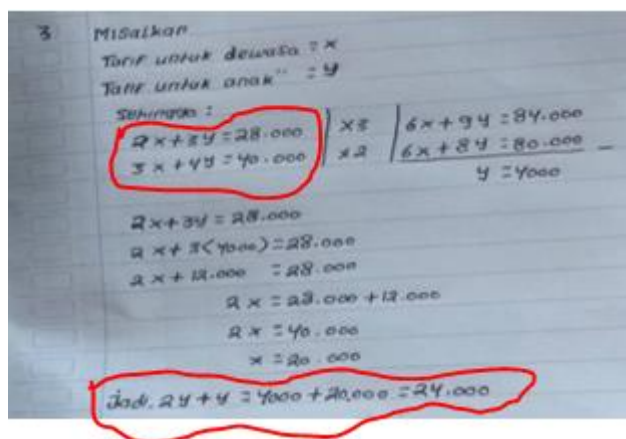 3 Misalkan
Tarif untuk dewasa = x
Tarif untuk anak" = y
Sehingga :
2x+3y=28.000 | x3 | 6x+9y=84.000
3x+4y=40.000 | x2 | 6x+8y=80.000 -
y=4000
2x+3y=28.000
2x+3(4000)=28.000
2x+12.000 =28.000
2x=28.000+12.000
2x=40.000
x=20.000
Jadi, 2y+y=4000+20,000=24.000